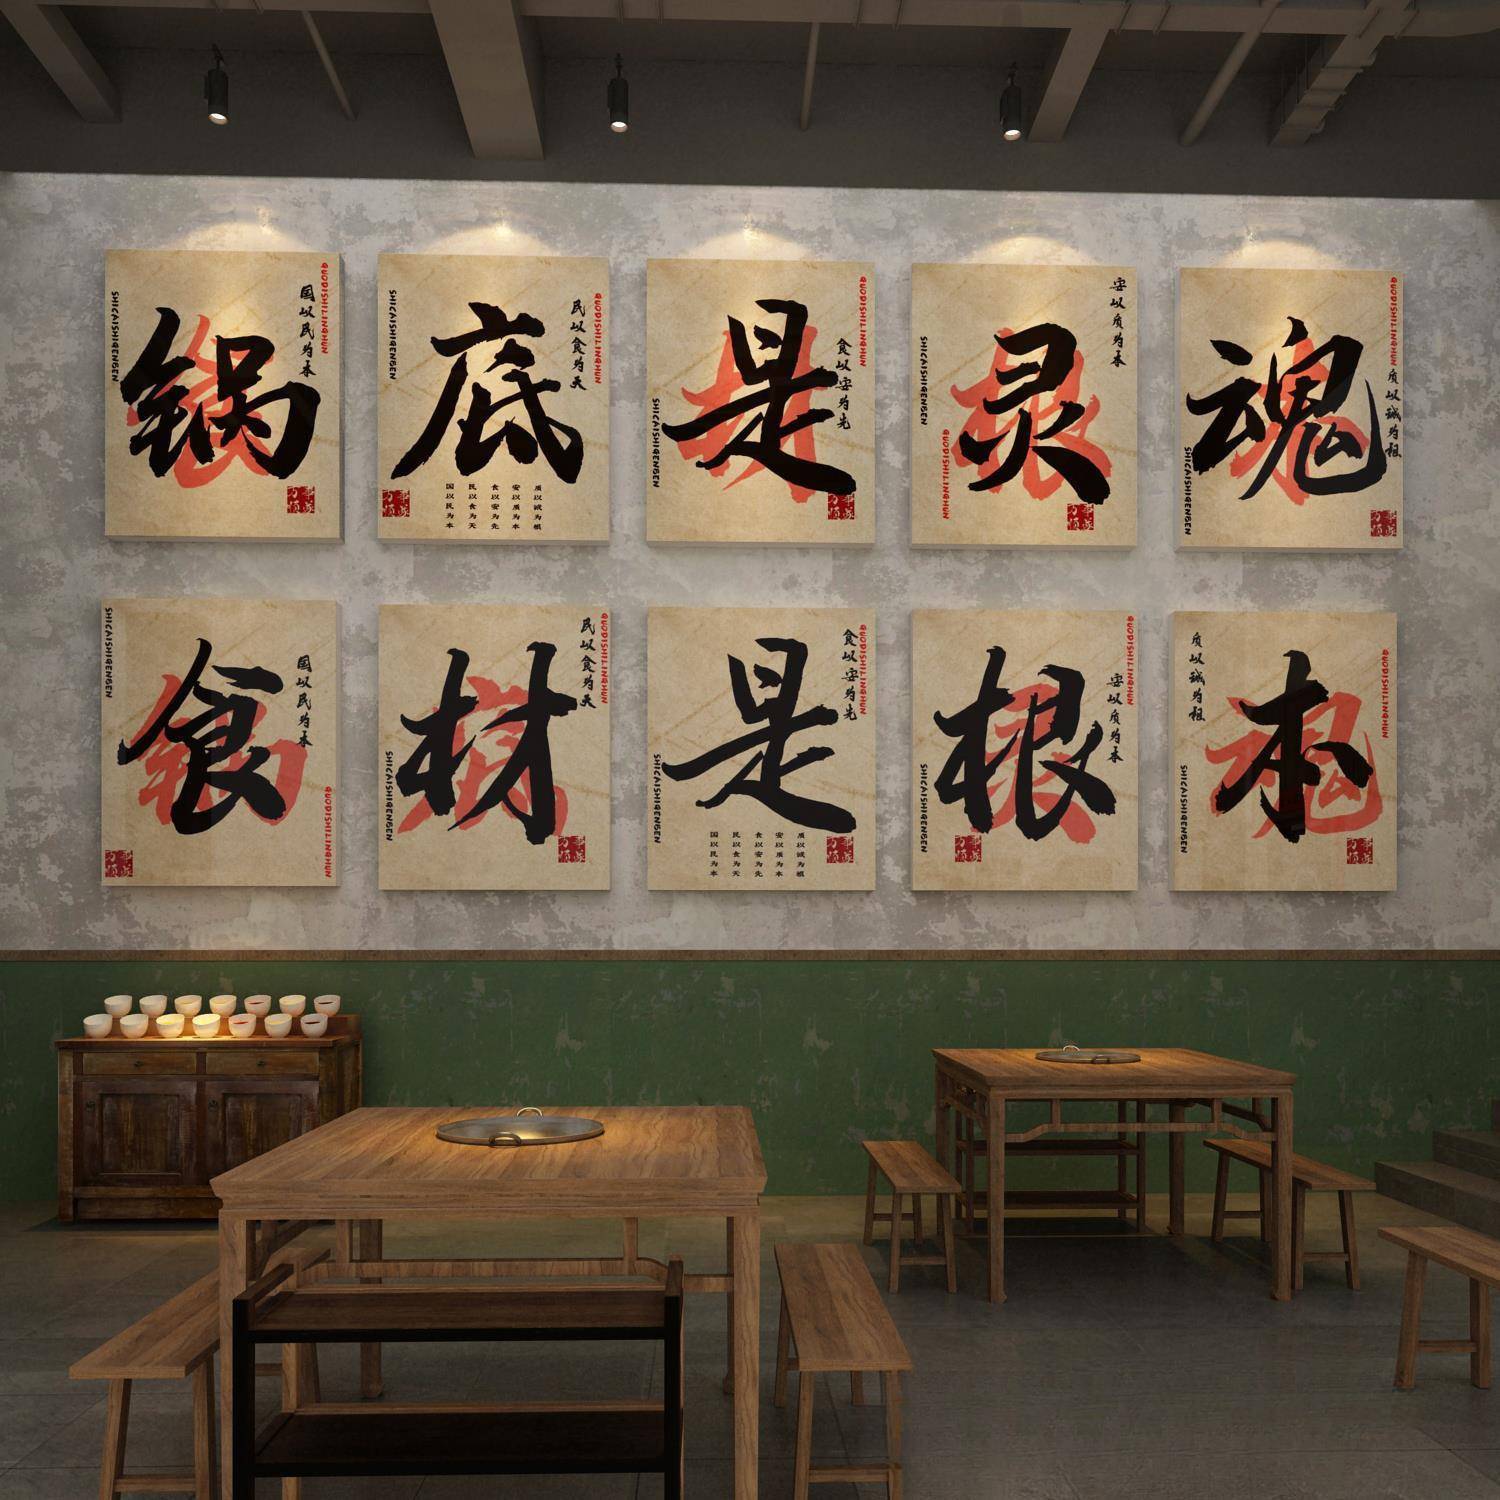 锅
国以民为本
SHICAISHIGENBEN
GUODISHILINGHUN
底
民以食为天
SHICAISHIGENBEN
GUODISHILINGHUN
国以民为本
民以食为天
食以安为先
安以质为本
质以诚为根
是
食以安为先
SHICAISHIGENBEN
GUODISHILINGHUN
灵
安以质为本
SHICAISHIGENBEN
GUODISHILINGHUN
魂
质以诚为根
SHICAISHIGENBEN
GUODISHILINGHUN
食
国以民为本
SHICAISHIGENBEN
GUODISHILINGHUN
材
民以食为天
SHICAISHIGENBEN
GUODISHILINGHUN
是
食以安为先
SHICAISHIGENBEN
GUODISHILINGHUN
国以民为本
民以食为天
食以安为先
安以质为本
质以诚为根
根
安以质为本
SHICAISHIGENBEN
GUODISHILINGHUN
本
质以诚为根
SHICAISHIGENBEN
GUODISHILINGHUN